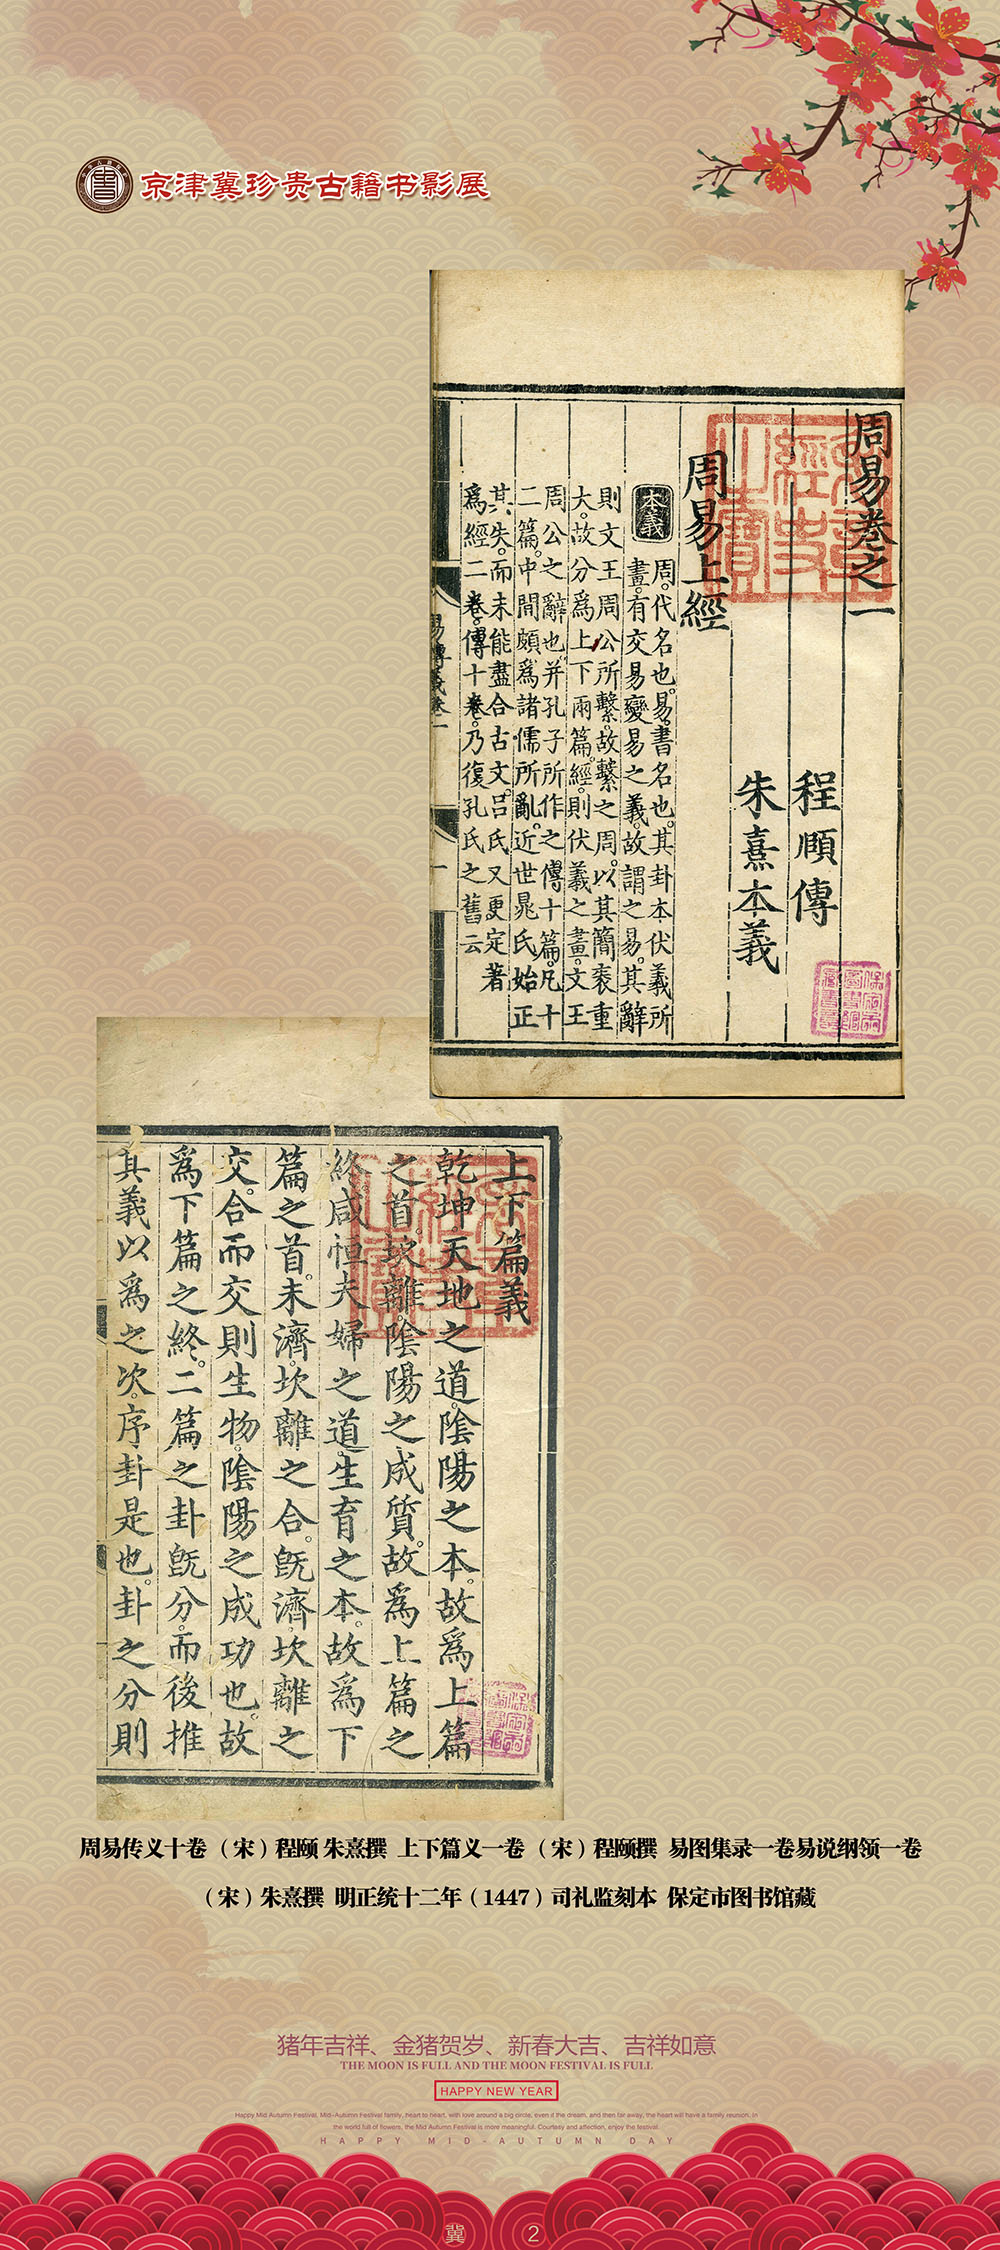 京津冀珍贵古籍书影展
周易卷之一
程頤傳
朱熹本義
周易上經
本義
周。代名也。易。書名也。其卦本伏羲所
畫。有交易變易之義。故謂之易。其辭
則文王周公所繫。故繫之周。以其簡袠重
大。故分為上下兩篇。經。則伏羲之畫。文王
周公之辭也。并孔子所作之傳十篇。凡十
二篇。中間頗為諸儒所亂。近世晁氏始正
其失。而未能盡合古文。吕氏又更定著
為經二卷。傳十卷。乃復孔氏之舊云
上下篇義
乾坤。天地之道。陰陽之本。故為上篇
之首。坎離。陰陽之成質。故為上篇之
終。咸恒。夫婦之道。生育之本。故為下
篇之首。未濟。坎離之合。既濟。坎離之
交。合而交則生物。陰陽之成功也。故
為下篇之終。二篇之卦既分。而後推
其義以為之次。序卦是也。卦之分則
周易传义十卷（宋）程颐 朱熹撰 上下篇义一卷（宋）程颐撰 易图集录一卷易说纲领一卷
（宋）朱熹撰 明正统十二年（1447）司礼监刻本 保定市图书馆藏
猪年吉祥、金猪贺岁、新春大吉、吉祥如意
THE MOON IS FULL AND THE MOON FESTIVAL IS FULL
HAPPY NEW YEAR
Happy Mid Autumn Festival, Mid-Autumn Festival family, heart to heart, with love around a big circle, even if the dream, and then far away, the heart will have a family reunion. In
the world full of flowers, the Mid Autumn Festival is more meaningful. Courtesy and affection, enjoy the festival.
HAPPY MID-AUTUMN DAY
冀 2